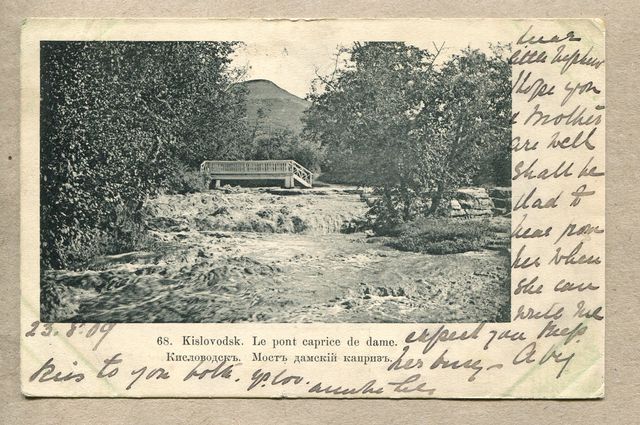 Dear
little nephew
I hope you
& Mother
are well
Shall be
glad to
hear from
her when
she can
write me
expect you keep
her busy -
23.8.09
Kiss to you both. yr lov.
68. Kislovodsk. Le pont caprice de dame.
Кисловодскъ. Мостъ дамскій капризъ.